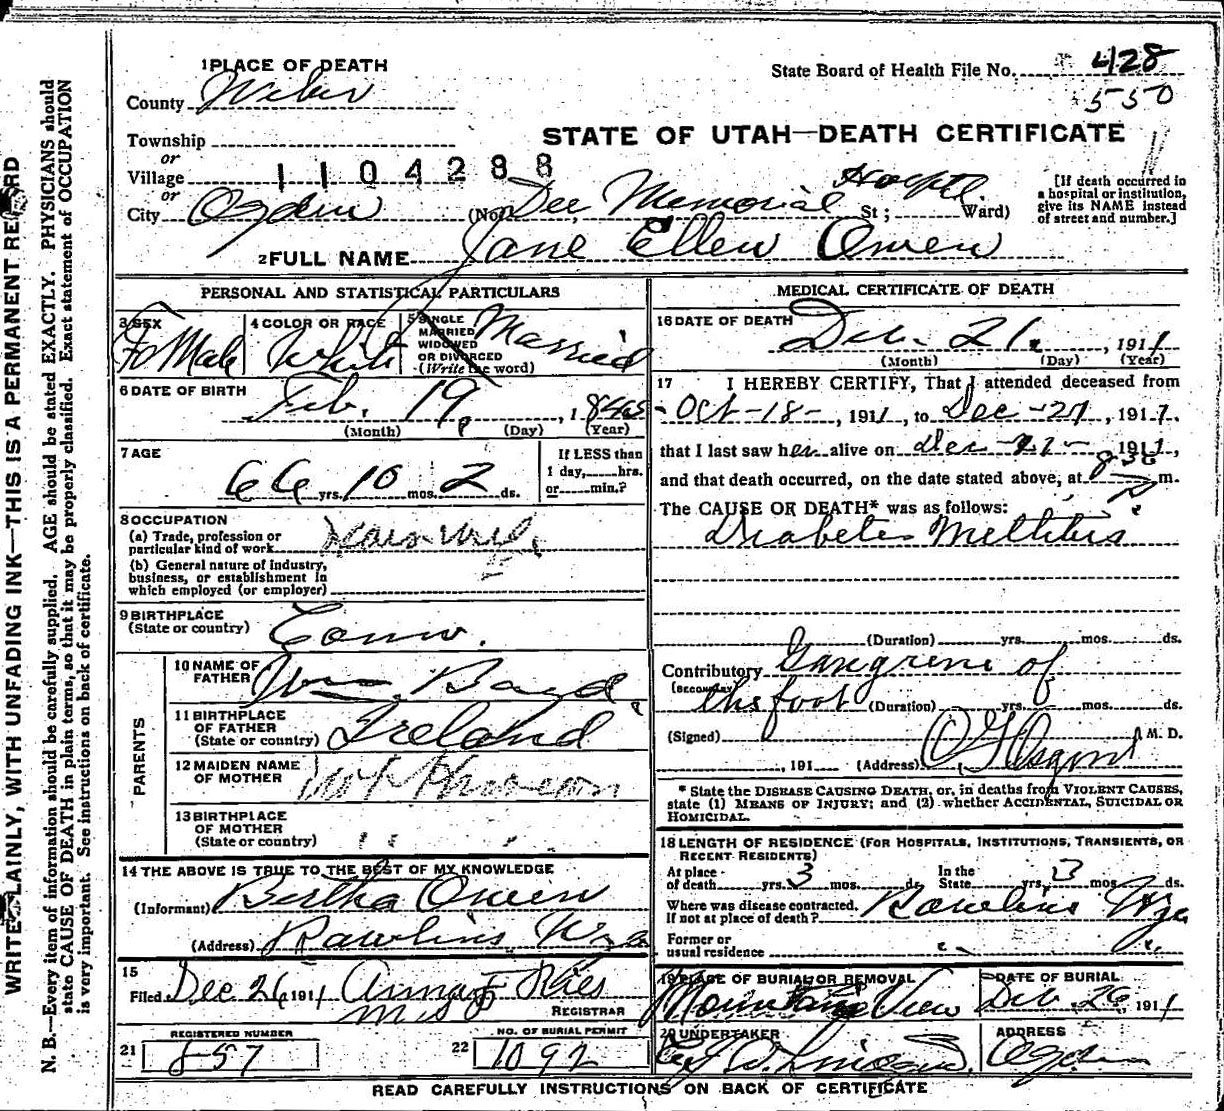 WRITE PLAINLY, WITH UNFADING INK—THIS IS A PERMANENT RECORD
N. B.—Every item of information should be carefully supplied. AGE should be stated EXACTLY. PHYSICIANS should
state CAUSE OF DEATH in plain terms, so that it may be properly classified. Exact statement of OCCUPATION
is very important. See instructions on back of certificate.
1 PLACE OF DEATH
County Weber
State Board of Health File No. 428
550
Township
or
STATE OF UTAH—DEATH CERTIFICATE
Village 1104288
or
City Ogden (No. Dee Memorial Hosptl. St; Ward)
[If death occurred in
a hospital or institution,
give its NAME instead
of street and number.]
2 FULL NAME Jane Ellen Owen
PERSONAL AND STATISTICAL PARTICULARS
3 SEX 4 COLOR OR RACE 5 SINGLE
MARRIED
WIDOWED
OR DIVORCED
(Write the word)
FeMale White Married
6 DATE OF BIRTH
Feb. 19, 1845
(Month) (Day) (Year)
7 AGE
66 yrs. 10 mos. 2 ds.
If LESS than
1 day, hrs.
or min.?
8 OCCUPATION
(a) Trade, profession or
particular kind of work
(b) General nature of industry,
business, or establishment in
which employed (or employer)
9 BIRTHPLACE
(State or country) Conn.
PARENTS
10 NAME OF
FATHER Wm. Boyd
11 BIRTHPLACE
OF FATHER
(State or country) Ireland
12 MAIDEN NAME
OF MOTHER Not Known
13 BIRTHPLACE
OF MOTHER
(State or country) " "
14 THE ABOVE IS TRUE TO THE BEST OF MY KNOWLEDGE
(Informant) Bertha Owen
(Address) Rawlins, Wyo
15
Filed Dec. 26, 1911 Anna F Ries
REGISTRAR
REGISTERED NUMBER
21 857
NO. OF BURIAL PERMIT
22 1092
MEDICAL CERTIFICATE OF DEATH
16 DATE OF DEATH
Dec. 21, 1911
(Month) (Day) (Year)
17 I HEREBY CERTIFY, That I attended deceased from
Oct-18-, 1911, to Dec-21, 1911,
that I last saw her alive on Dec-21-, 1911,
and that death occurred, on the date stated above, at 850 P m.
The CAUSE OR DEATH* was as follows:
Diabetes Mellitus
(Duration) yrs. mos. ds.
Contributory Gangrene of
(SECONDARY) the foot (Duration) yrs. mos. ds.
(Signed) M. D.
, 191 (Address)
* State the DISEASE CAUSING DEATH, or, in deaths from VIOLENT CAUSES,
state (1) MEANS OF INJURY; and (2) whether ACCIDENTAL, SUICIDAL OR
HOMICIDAL.
18 LENGTH OF RESIDENCE (FOR HOSPITALS, INSTITUTIONS, TRANSIENTS, OR
RECENT RESIDENTS)
At place
of death yrs. 3 mos. ds.
In the
State yrs. 3 mos. ds.
Where was disease contracted,
If not at place of death? Rawlins Wyo
Former or
usual residence " "
19 PLACE OF BURIAL OR REMOVAL DATE OF BURIAL
Mountain View Dec. 26 1911
20 UNDERTAKER ADDRESS
Ogden
READ CAREFULLY INSTRUCTIONS ON BACK OF CERTIFICATE